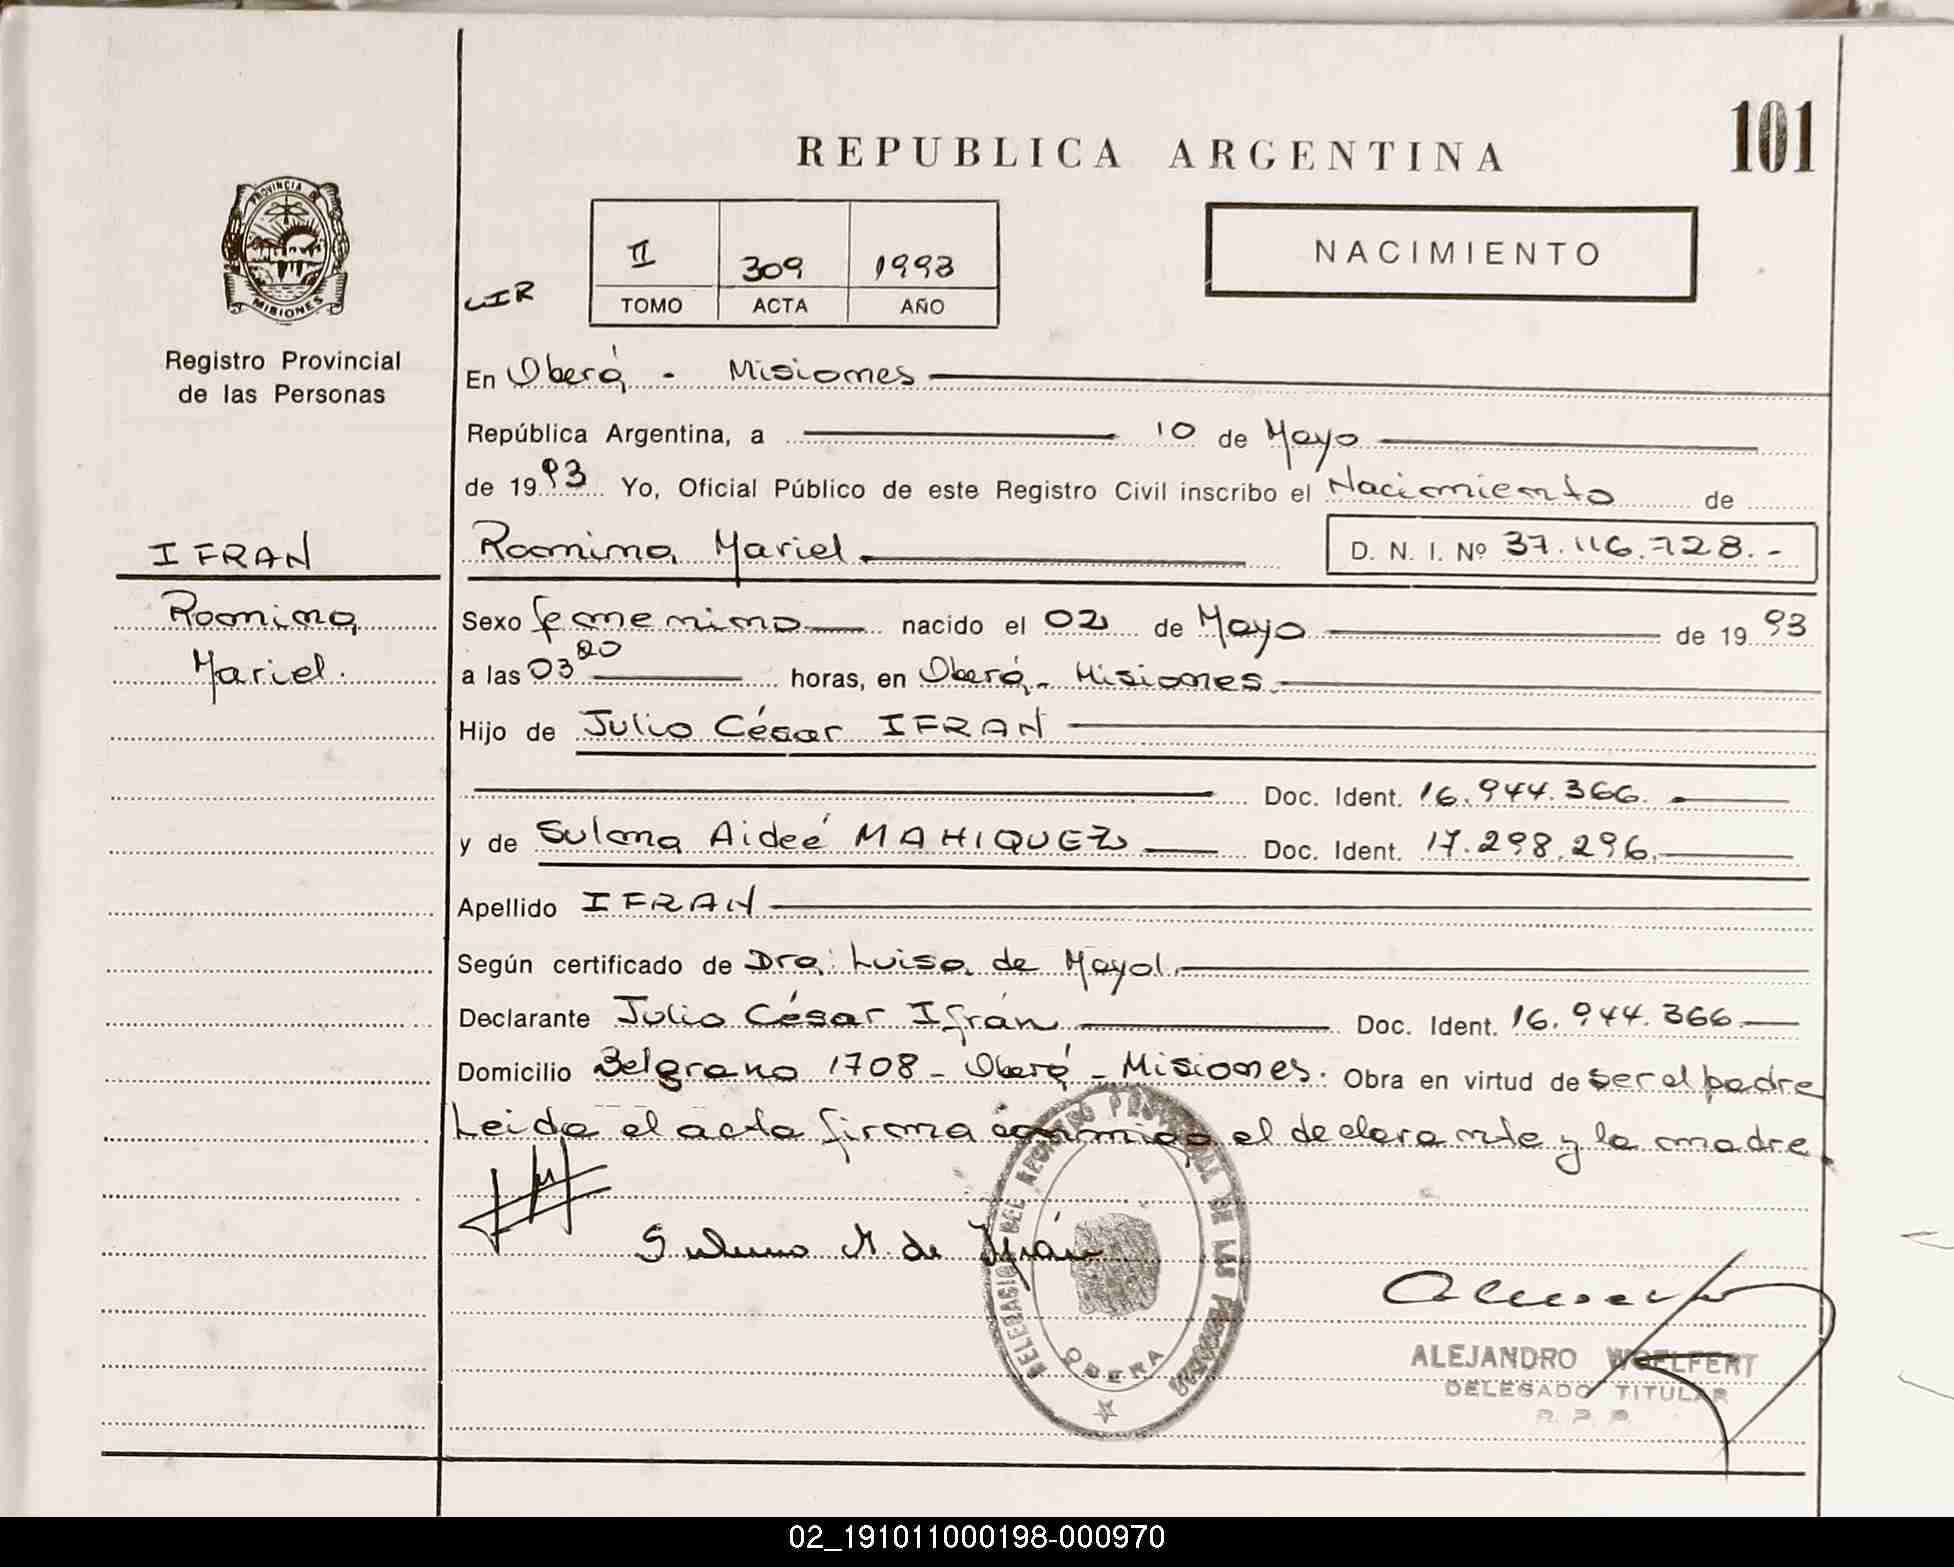 101
REPUBLICA ARGENTINA
PROVINCIA DE
MISIONES
Registro Provincial
de las Personas
II 309 1993
TOMO ACTA AÑO
NACIMIENTO
En Oberá - Misiones
República Argentina, a 10 de Mayo
de 1993 Yo, Oficial Público de este Registro Civil inscribo el Nacimiento de
IFRAN
Romina Mariel D. N. I. Nº 37.116.728.-
Romina
Mariel.
Sexo femenino nacido el 02 de Mayo de 1993
a las 03 20 horas, en Oberá - Misiones.
Hijo de Julio César IFRAN
Doc. Ident. 16.944.366.
y de Sulma Aideé MAHIQUEZ Doc. Ident. 17.298.296.
Apellido IFRAN
Según certificado de Dra: Luisa de Mayol.
Declarante Julio César Ifrán Doc. Ident. 16.944.366
Domicilio Belgrano 1708 - Oberá - Misiones. Obra en virtud de ser el padre
Leida el acta firma conmigo el declarante y la madre.
Sulma M. de Ifrán
DELEGACION DEL REGISTRO PROVINCIAL DE LAS PERSONAS
OBERA
ALEJANDRO WOELFERT
DELEGADO TITULAR
R. P. P.
02_191011000198-000970